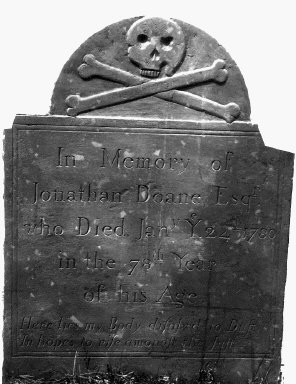 In Memory of
Jonathan Doane, Esqr.
who Died Jany. Ye. 22d. 1780
in the 78th Year
of his Age
Here lies my Body disolv'd to Dust
In hopes to rise amongst the Just